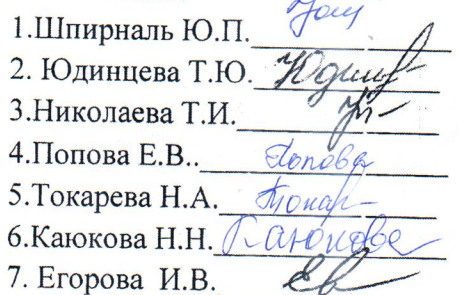 1.Шпирналь Ю.П.
2. Юдинцева Т.Ю.
3.Николаева Т.И.
4.Попова Е.В.. Попова
5.Токарева Н.А. Токар
6.Каюкова Н.Н. Каюкова
7. Егорова И.В. Ев